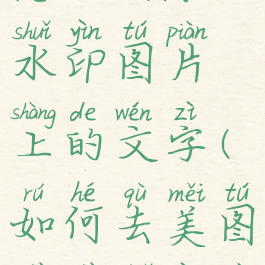 shuǐ yìn tú piàn
水印图片
shàng de wén zì
上的文字(
rú hé qù měi tú
如何去美图